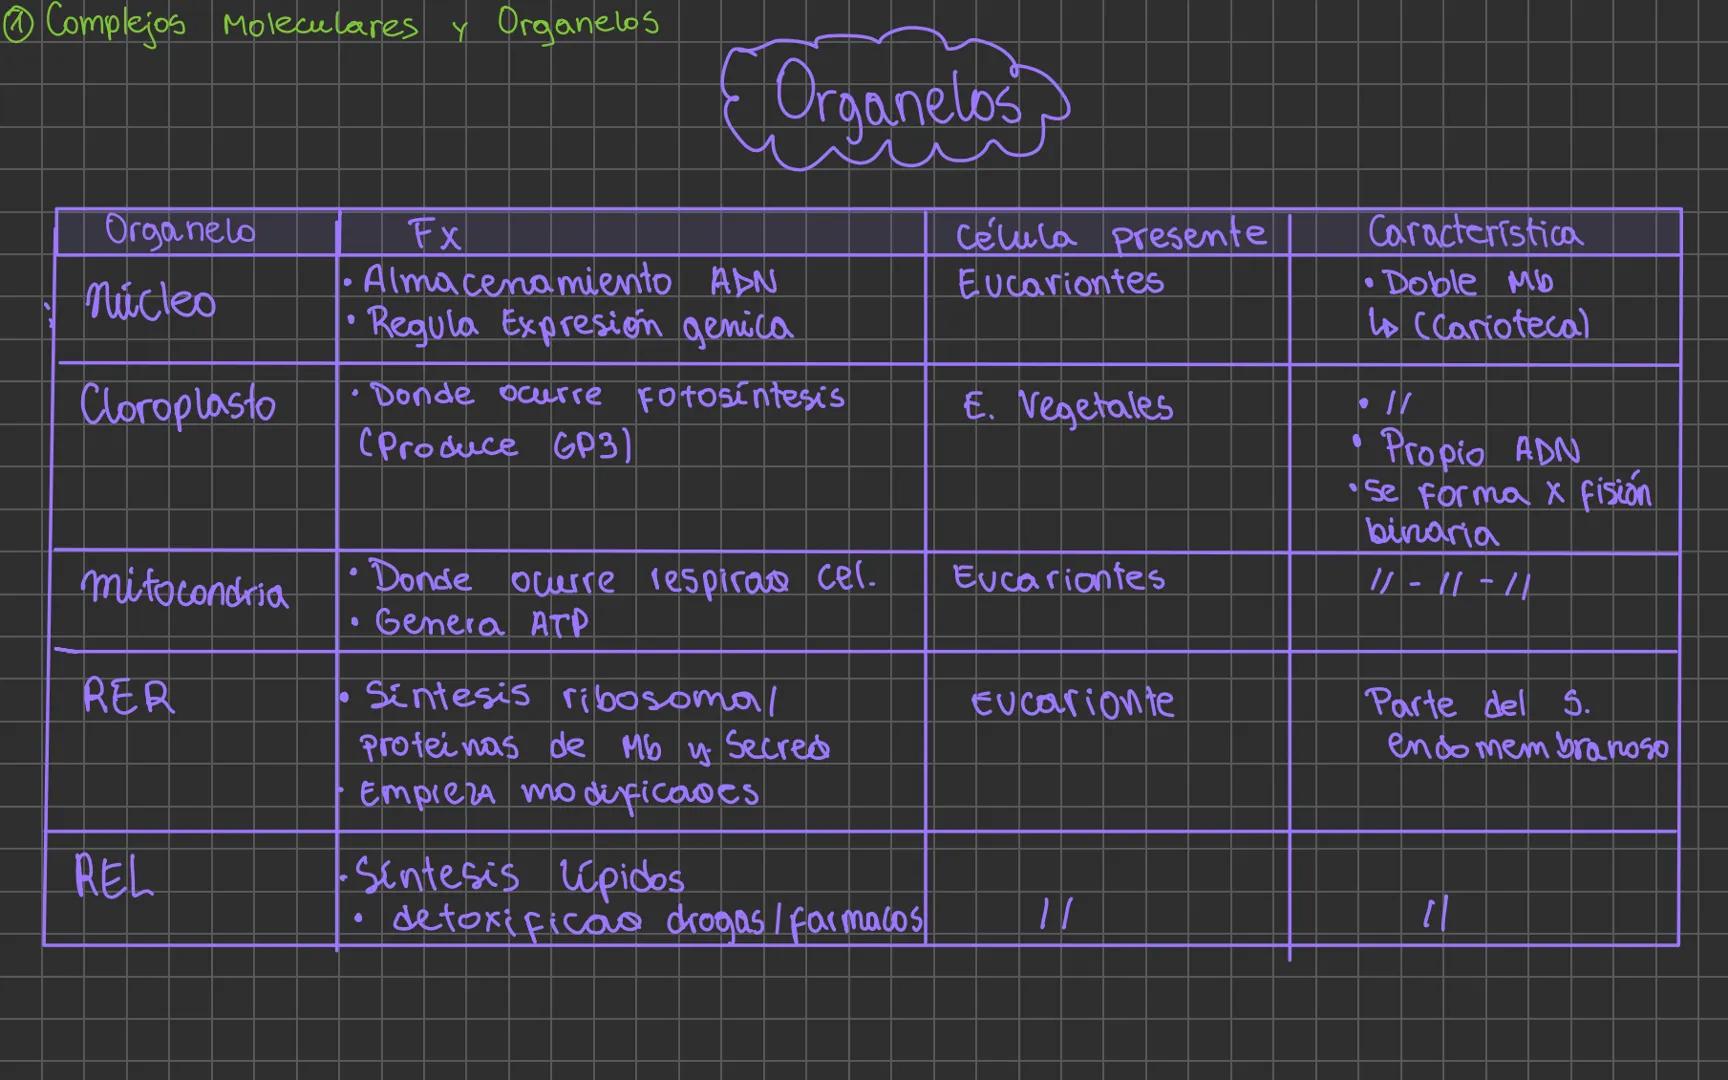 ① Complejos Moleculares y Organelos
Organelos
Organelo Fx Célula presente Característica
Núcleo
• Almacenamiento ADN
• Regula Expresión genica
Eucariontes
• Doble Mb
↳ (Carioteca)
Cloroplasto
• Donde ocurre Fotosíntesis
(Produce GP3)
E. Vegetales
• //
• Propio ADN
• Se forma x fisión
binaria
Mitocondria
• Donde ocurre respirao cel.
• Genera ATP
Eucariontes
// - // - //
RER
• Síntesis ribosomal
proteínas de Mb y Secreo
• Empieza modificaoes
Eucarionte
Parte del S.
endomembranoso
REL
• Síntesis lípidos
• detoxificao drogas/farmacos
//
//